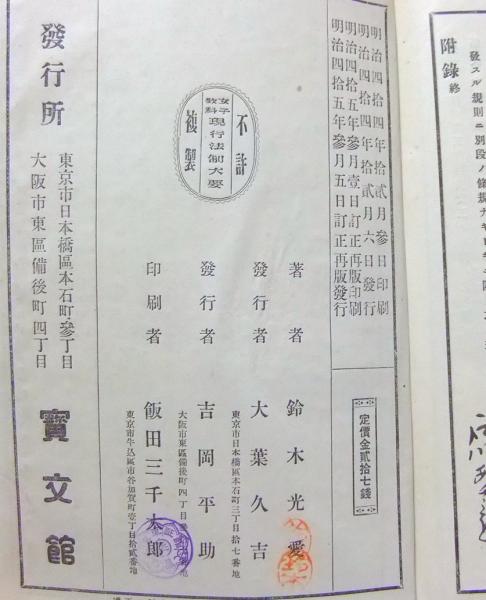 發スル規則ニ別段ノ
附錄 終
明治四拾四年拾貳月參日印刷
明治四拾四年拾貳月六日發行
明治四拾五年參月壹日訂正再版印刷
明治四拾五年參月五日訂正再版發行
定價金貳拾七錢
不許
女子教科
現行法制大要
複製
著者 鈴木光愛
發行者 大葉久吉
東京市日本橋區本石町三丁目拾七番地
發行者 吉岡平助
大阪市東區備後町四丁目
印刷者 飯田三千太郎
東京市牛込區市谷加賀町壹丁目拾貳番地
發行所
東京市日本橋區本石町參丁目
大阪市東區備後町四丁目
寳文館